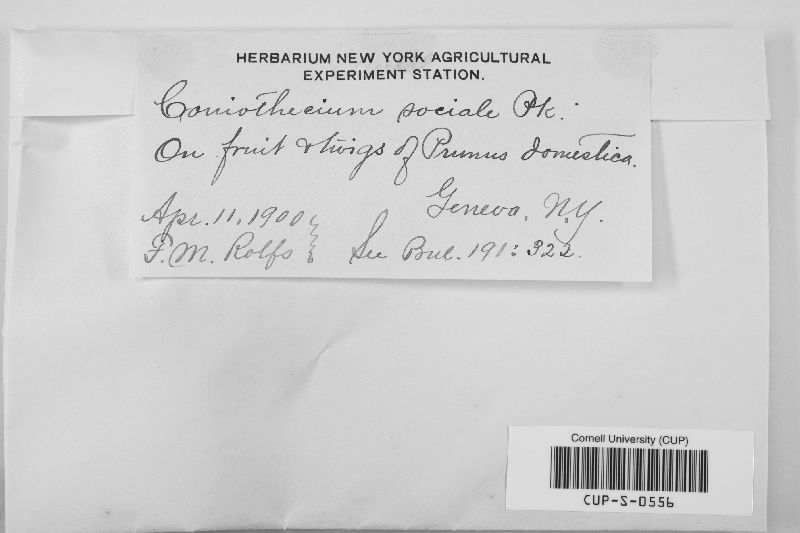 HERBARIUM NEW YORK AGRICULTURAL
EXPERIMENT STATION.
Coniothecium sociale Pk.
On fruit & twigs of Prunus domestica.
Geneva, N.Y.
Apr. 11, 1900
F. M. Rolfs
See Bul. 191: 322.
Cornell University (CUP)
CUP-S-0556